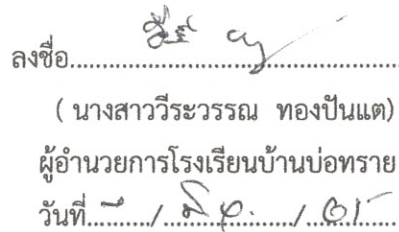 ลงชื่อ........................................
( นางสาววีระวรรณ ทองปันแต)
ผู้อำนวยการโรงเรียนบ้านบ่อทราย
วันที่......../ มิ.ย. /........